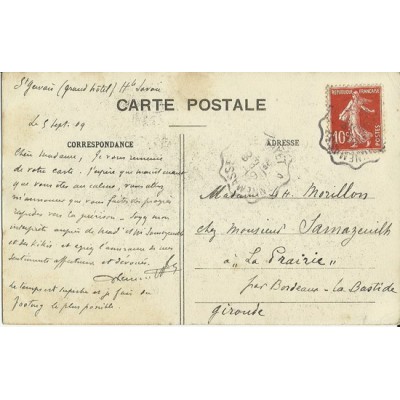 St Gervais (grand hôtel) Hte Savoie
CARTE POSTALE
Le 5 Sept. 09
CORRESPONDANCE
Chère Madame, Je vous remercie
de votre carte. J'apprends maintenant
que vous êtes au calme, vous allez
m'annoncer que vous faites des progrès
sur la précision. Soyez mon
interprète auprès de Mad et Mr Samazeuilh
et agréez l'assurance de mes
sentiments affectueux et dévoués.
Le temps est superbe et je fais du
footing le plus possible.
ADRESSE
RÉPUBLIQUE FRANÇAISE
10c
POSTES
Madame H Morillon
chez Monsieur Samazeuilh
à "La Prairie"
par Bordeaux - La Bastide
Gironde